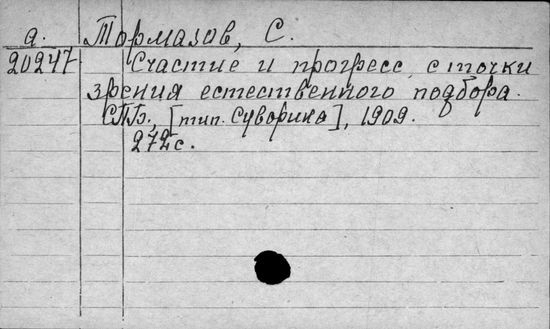 а. Тормазов, С.
20247 Счастие и прогресс с точки
зрения естественного подбора.
СПБ., [тип. Суворина], 1909.
272 с.